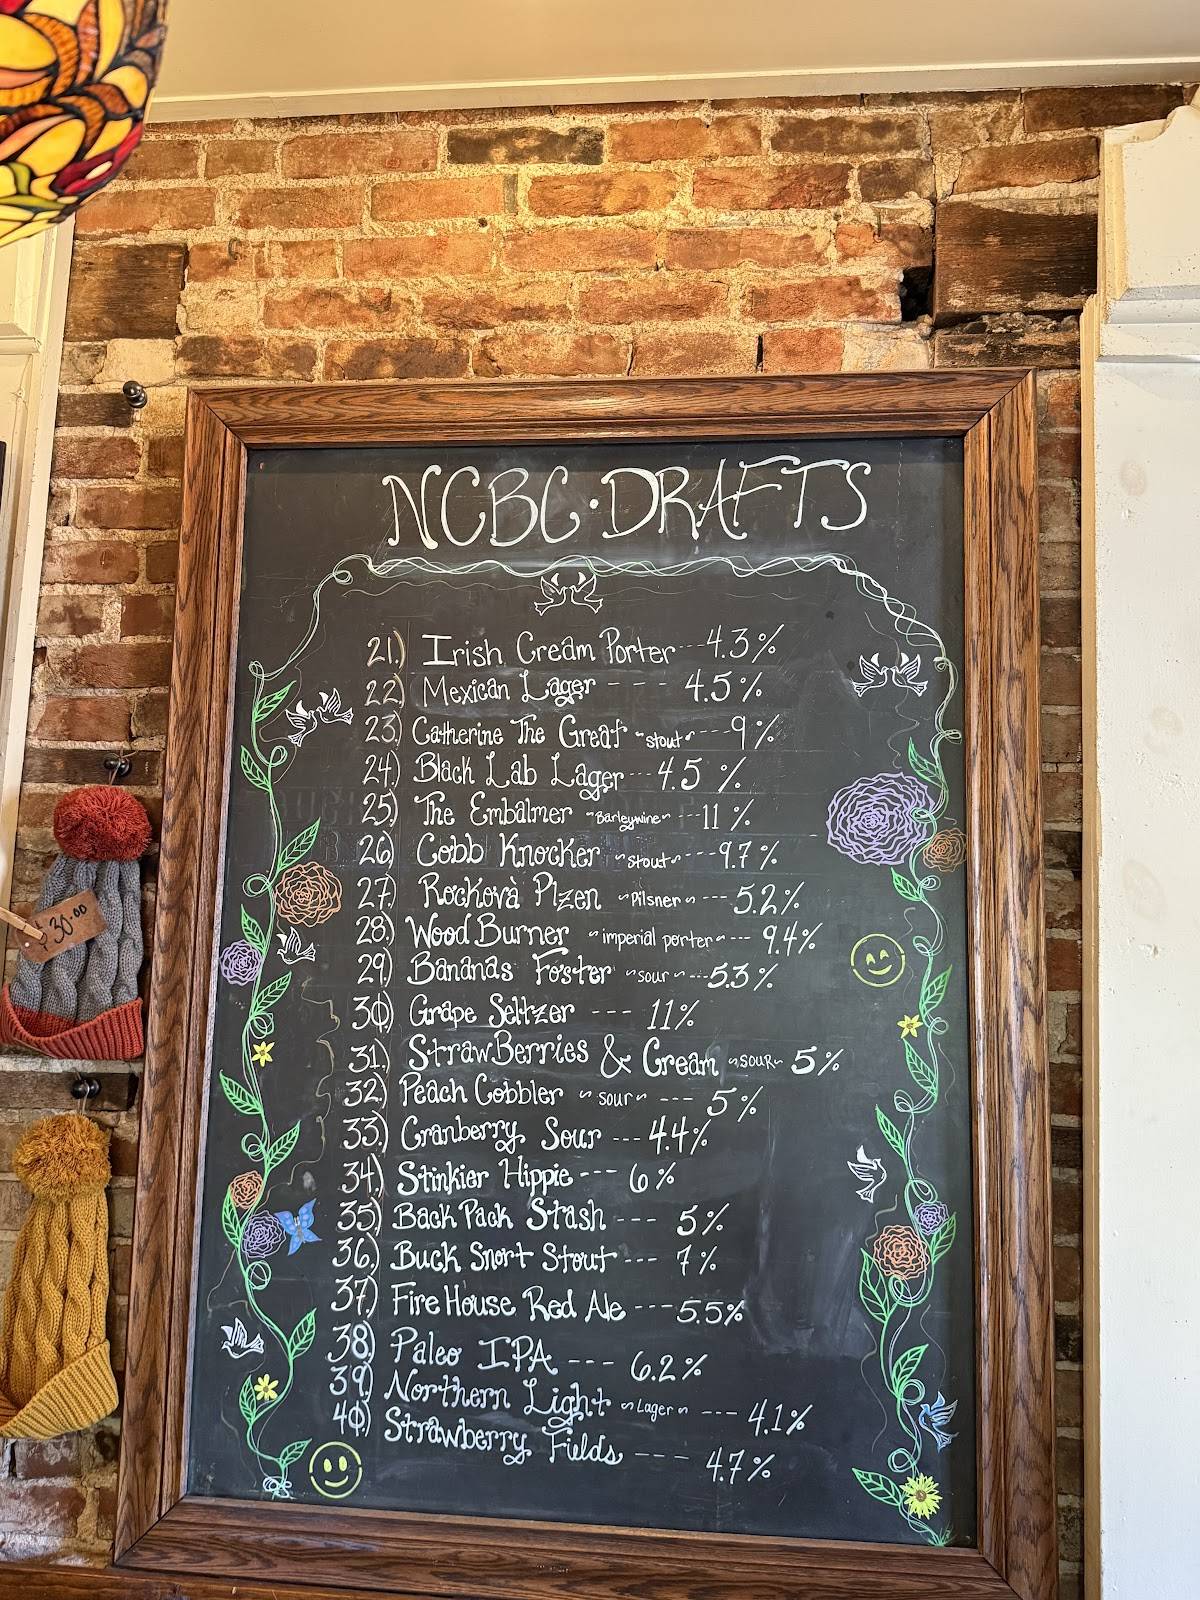 NCBC · DRAFTS
21.) Irish Cream Porter --- 4.3%
22.) Mexican Lager --- 4.5%
23.) Catherine The Great ~stout~ --- 9%
24.) Black Lab Lager --- 4.5%
25.) The Embalmer ~Barleywine~ --- 11%
26.) Cobb Knocker ~stout~ --- 9.7%
27.) Rockovà Plzen ~Pilsner~ --- 5.2%
28.) Wood Burner ~imperial porter~ --- 9.4%
29.) Bananas Foster ~sour~ --- 5.3%
30.) Grape Seltzer --- 11%
31.) StrawBerries & Cream ~sour~ 5%
32.) Peach Cobbler ~sour~ --- 5%
33.) Cranberry Sour --- 4.4%
34.) Stinkier Hippie --- 6%
35.) Back Pack Stash --- 5%
36.) Buck Snort Stout --- 7%
37.) Fire House Red Ale --- 5.5%
38.) Paleo IPA --- 6.2%
39.) Northern Light ~Lager~ --- 4.1%
40.) Strawberry Fields --- 4.7%
$30.00